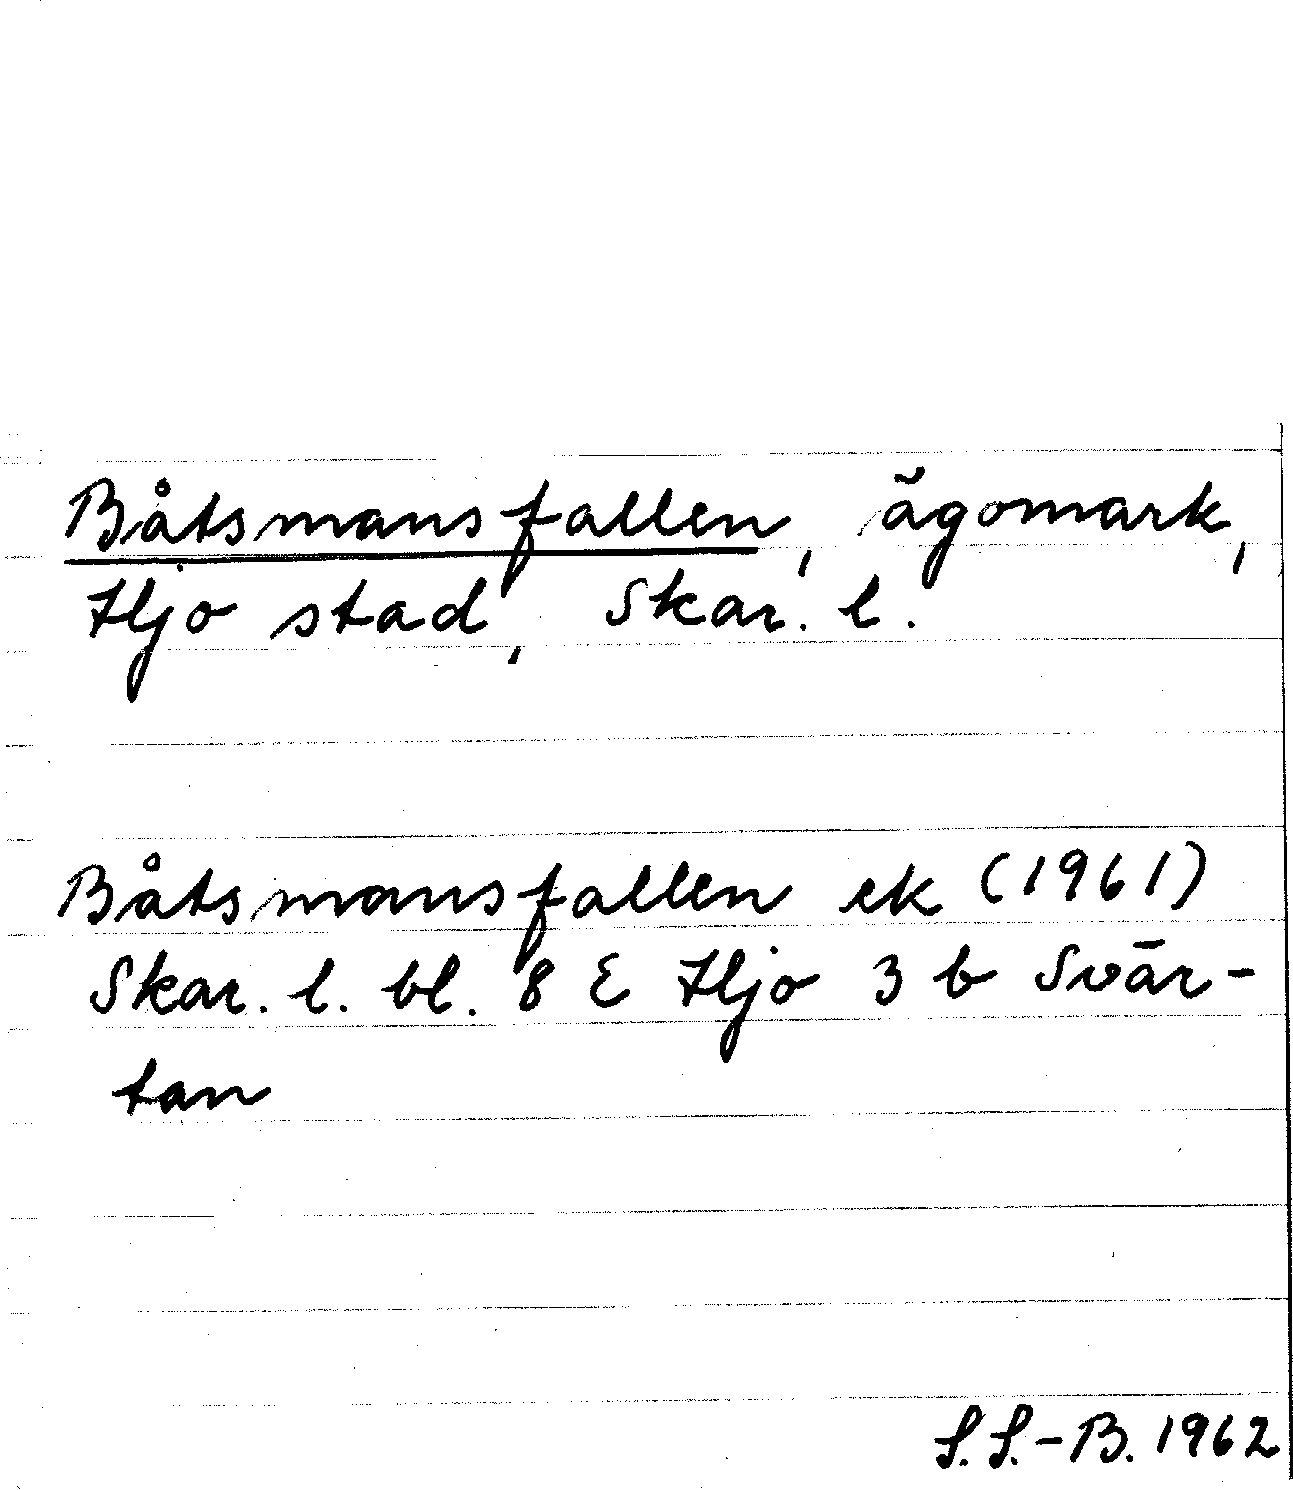 Båtsmansfallen, ägomark,
Hjo stad, Skar. l.
Båtsmansfallen ek (1961)
Skar. l. bl. 8 E Hjo 3 b Svär-
tan
S.S.-B. 1962